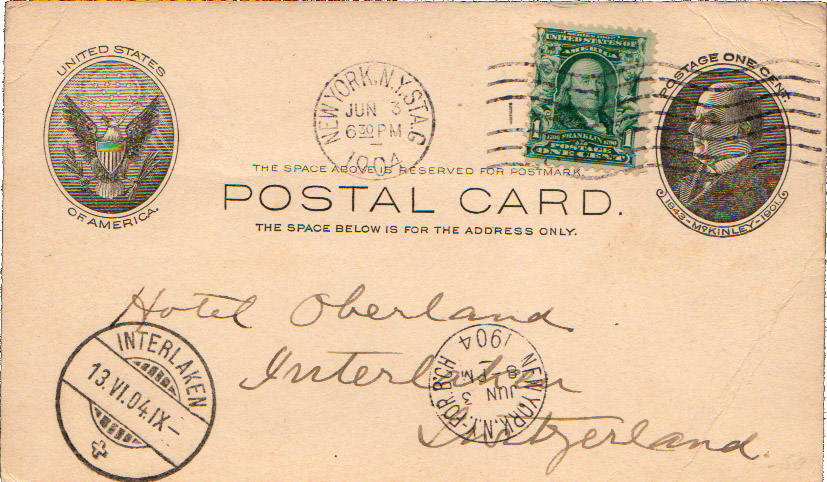 UNITED STATES
OF AMERICA.
NEW YORK, N.Y. STA. G
JUN 3
6 30 PM
1904
SERIES 1902
UNITED STATES OF
AMERICA
1706 FRANKLIN 1790
1 POSTAGE 1
ONE CENT
POSTAGE ONE CENT.
1843-McKINLEY-1901.
THE SPACE ABOVE IS RESERVED FOR POSTMARK.
POSTAL CARD.
THE SPACE BELOW IS FOR THE ADDRESS ONLY.
Hotel Oberland
Interlaken
Switzerland.
INTERLAKEN
13.VI.04.IX-
NEW YORK, N.Y. FOR. B'CH
JUN 3
8 PM
1904